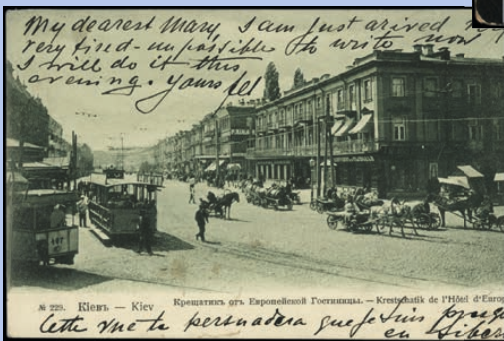 My dearest Mary, I am just arived
very tired - impossible to write now
I will do it this
evening. Yours
№ 229. Кіевъ — Kiev
Крещатикъ отъ Европейской Гостиницы. — Krestschatik de l'Hôtel d'Europ
Cette vue te persuadera que je suis
en Siber